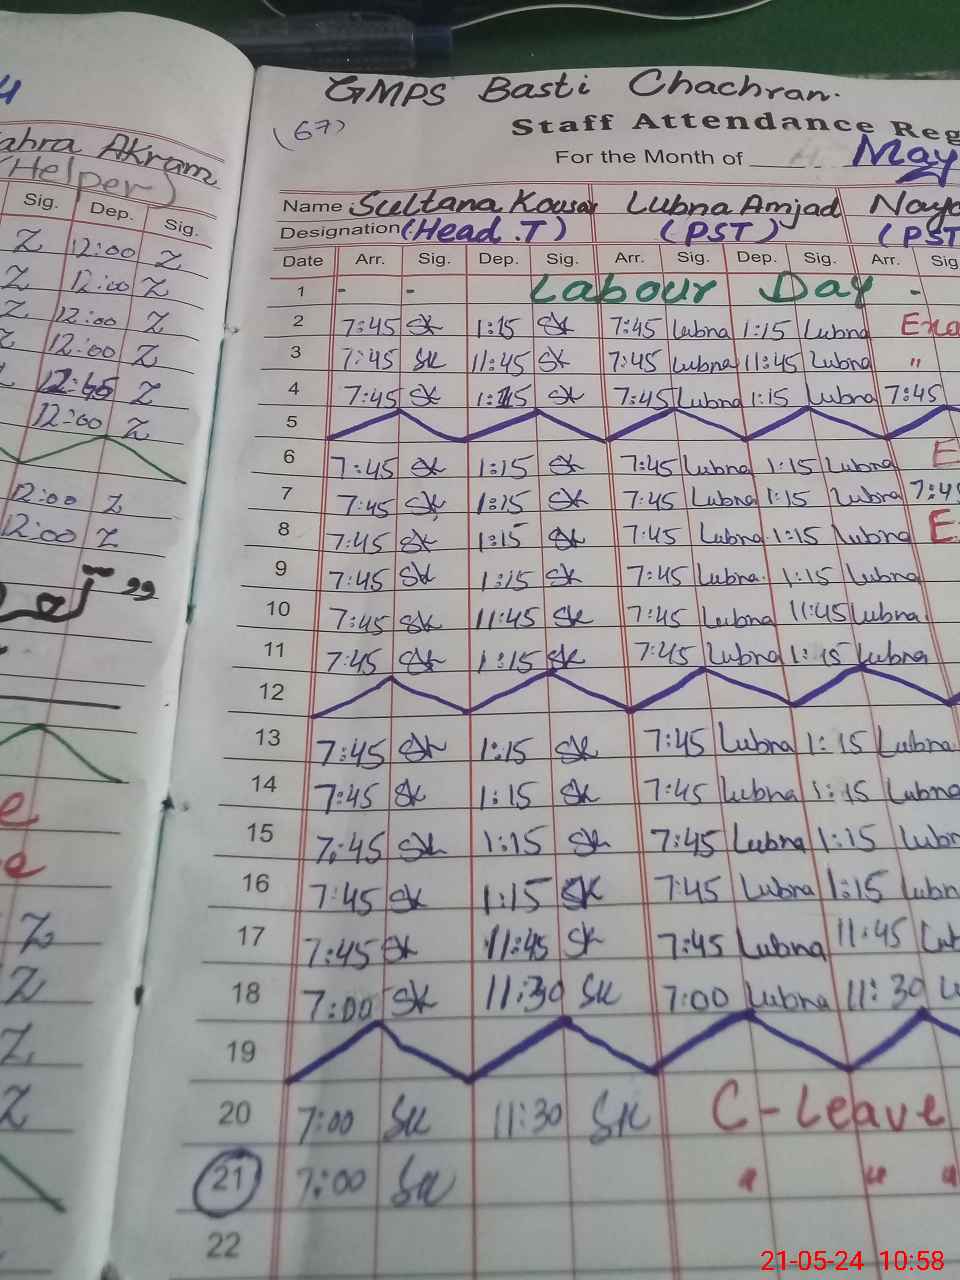 GMPS Basti Chachran.
(67)
Staff Attendance Reg
For the Month of May
Name Sultana Kousar Lubna Amjad
Designation (Head.T) (PST) (PST
Date Arr. Sig. Dep. Sig. Arr. Sig. Dep. Sig. Arr. Sig
1 - - Labour Day -
2 7:45 SK 1:15 SK 7:45 Lubna 1:15 Lubna
3 7:45 SK 11:45 SK 7:45 Lubna 11:45 Lubna "
4 7:45 SK 1:15 SK 7:45 Lubna 1:15 Lubna 7:45
5
6 7:45 SK 1:15 SK 7:45 Lubna 1:15 Lubna E
7 7:45 SK 1:15 SK 7:45 Lubna 1:15 Lubna 7:45
8 7:45 SK 1:15 SK 7:45 Lubna 1:15 Lubna E
9 7:45 SK 1:15 SK 7:45 Lubna 1:15 Lubna
10 7:45 SK 11:45 SK 7:45 Lubna 11:45 Lubna
11 7:45 SK 1:15 SK 7:45 Lubna 1:15 Lubna
12
13 7:45 SK 1:15 SK 7:45 Lubna 1:15 Lubna
14 7:45 SK 1:15 SK 7:45 Lubna 1:15 Lubna
15 7:45 SK 1:15 SK 7:45 Lubna 1:15 Lubn
16 7:45 SK 1:15 SK 7:45 Lubna 1:15 Lubn
17 7:45 SK 11:45 SK 7:45 Lubna 11:45 Lub
18 7:00 SK 11:30 SK 7:00 Lubna 11:30 L
19
20 7:00 SK 11:30 SK C-Leave
21 7:00 SK " " "
22
ahra Akram
(Helper)
Sig. Dep. Sig.
Z 12:00 Z
Z 12:00 Z
Z 12:00 Z
Z 12:00 Z
Z
12:00 Z
12:00 Z
12:00 Z
Z
Z
Z
Z
21-05-24 10:58